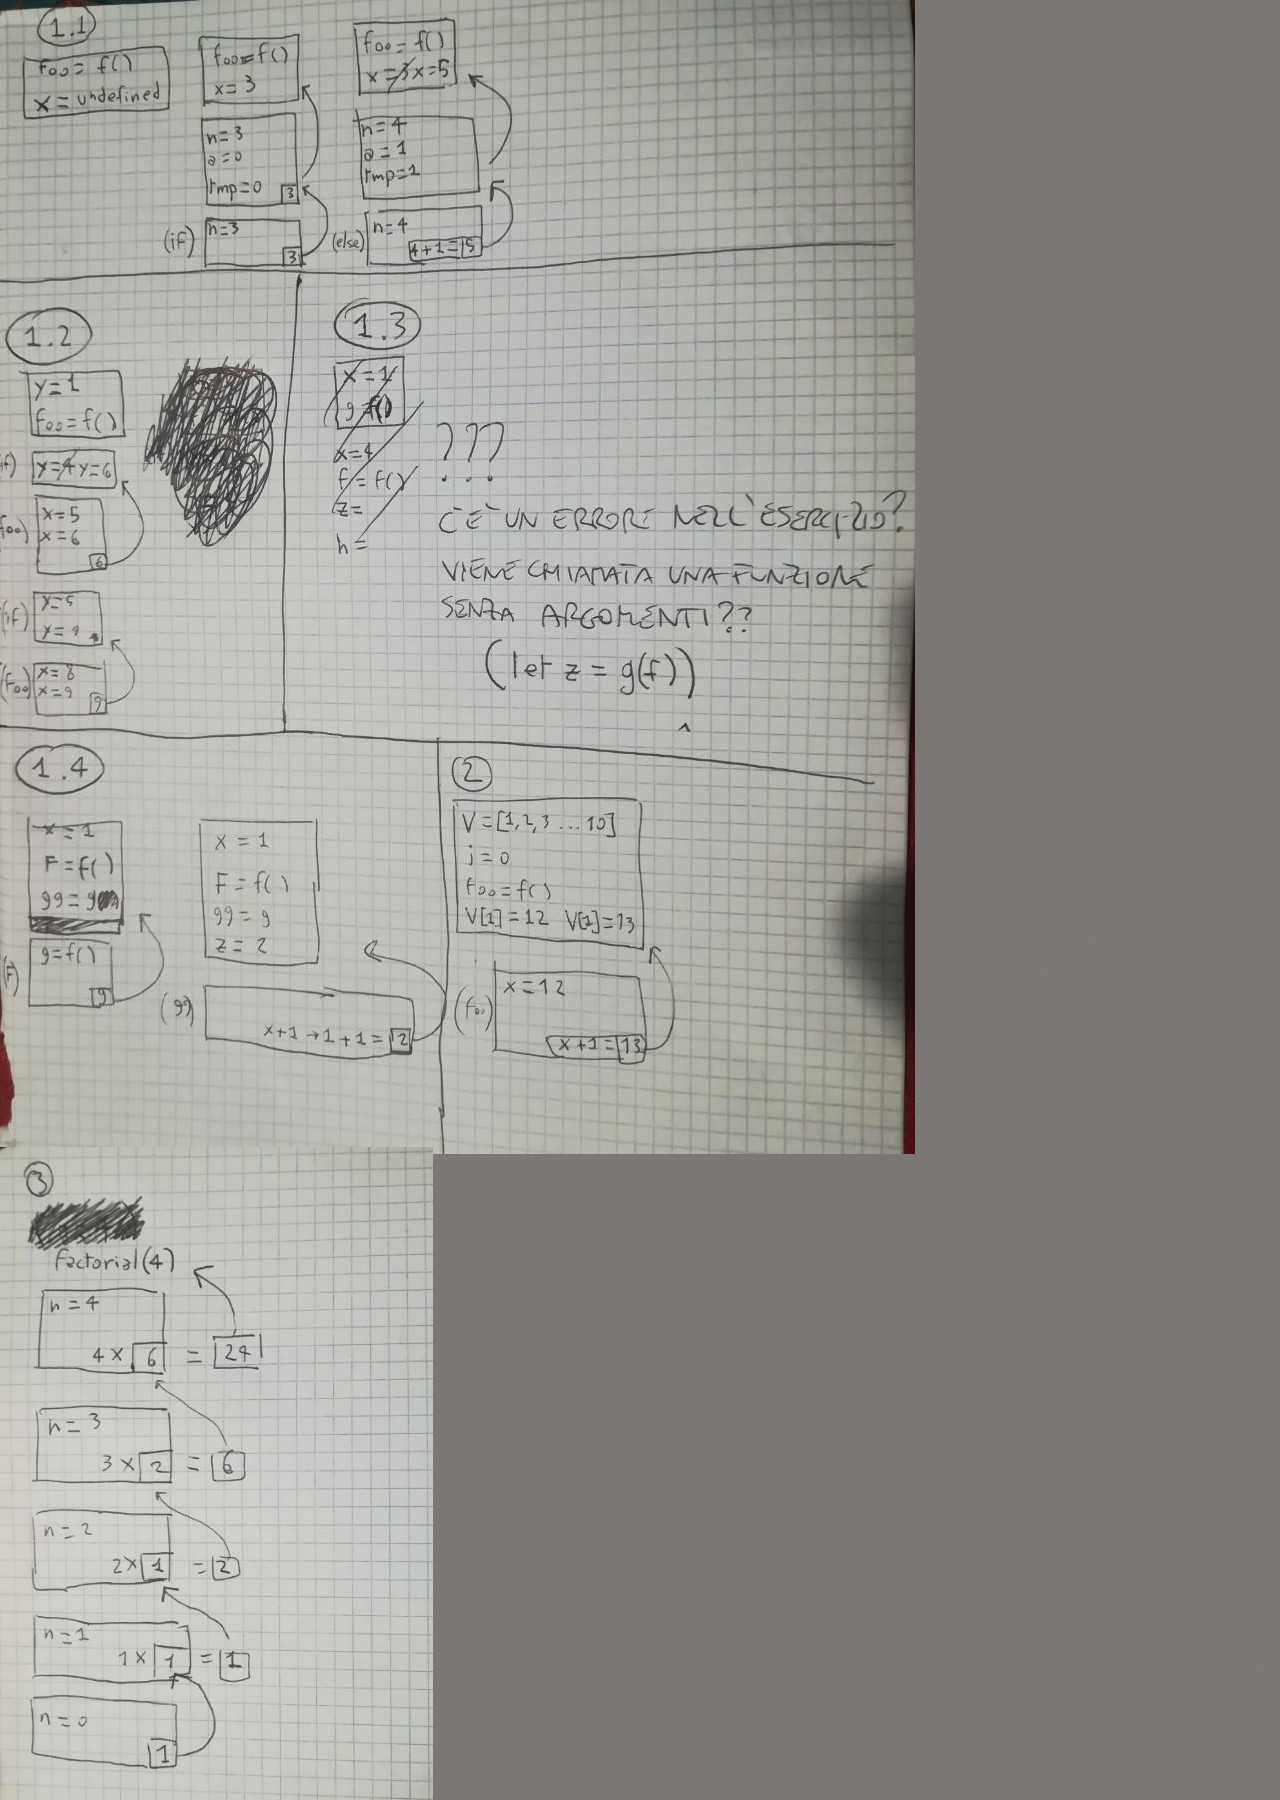 1.1
foo = f()
x = undefined
foo = f()
x = 3
n = 3
a = 0
tmp = 0 3
(if) n = 3
3
foo = f()
x = 3 x = 5
n = 4
a = 1
tmp = 1
(else) n = 4
4+1 = 5
1.2
y = 1
foo = f()
y = 4 y = 6
x = 5
x = 6
6
(if) y = 5
y = 9
(foo) x = 8
x = 9
9
1.3
x = 1
g = f()
x = 4
f = f()
z =
h =
???
C'È UN ERRORE NELL'ESERCIZIO?
VIENE CHIAMATA UNA FUNZIONE
SENZA ARGOMENTI??
(let z = g(f))
^
1.4
x = 1
F = f()
gg = g
(F) g = f()
g
x = 1
F = f()
gg = g
z = 2
(gg)
x+1 → 1+1 = 2
2
V = [1,2,3 ... 10]
i = 0
foo = f()
V[1] = 12 V[1] = 13
(foo) x = 12
x+1 = 13
3
factorial(4)
n = 4
4 x 6 = 24
n = 3
3 x 2 = 6
n = 2
2 x 1 = 2
n = 1
1 x 1 = 1
n = 0
1